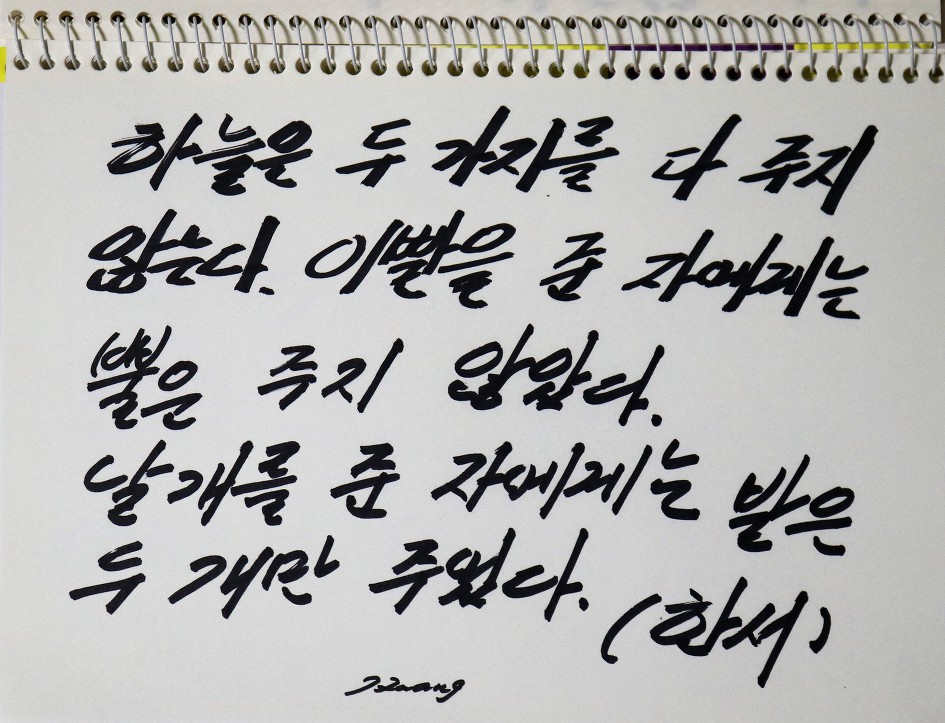 하늘은 두 가지를 다 주지
않는다. 이빨을 준 자에게는
뿔은 주지 않았다.
날개를 준 자에게는 발은
두 개만 주었다.
(한서)